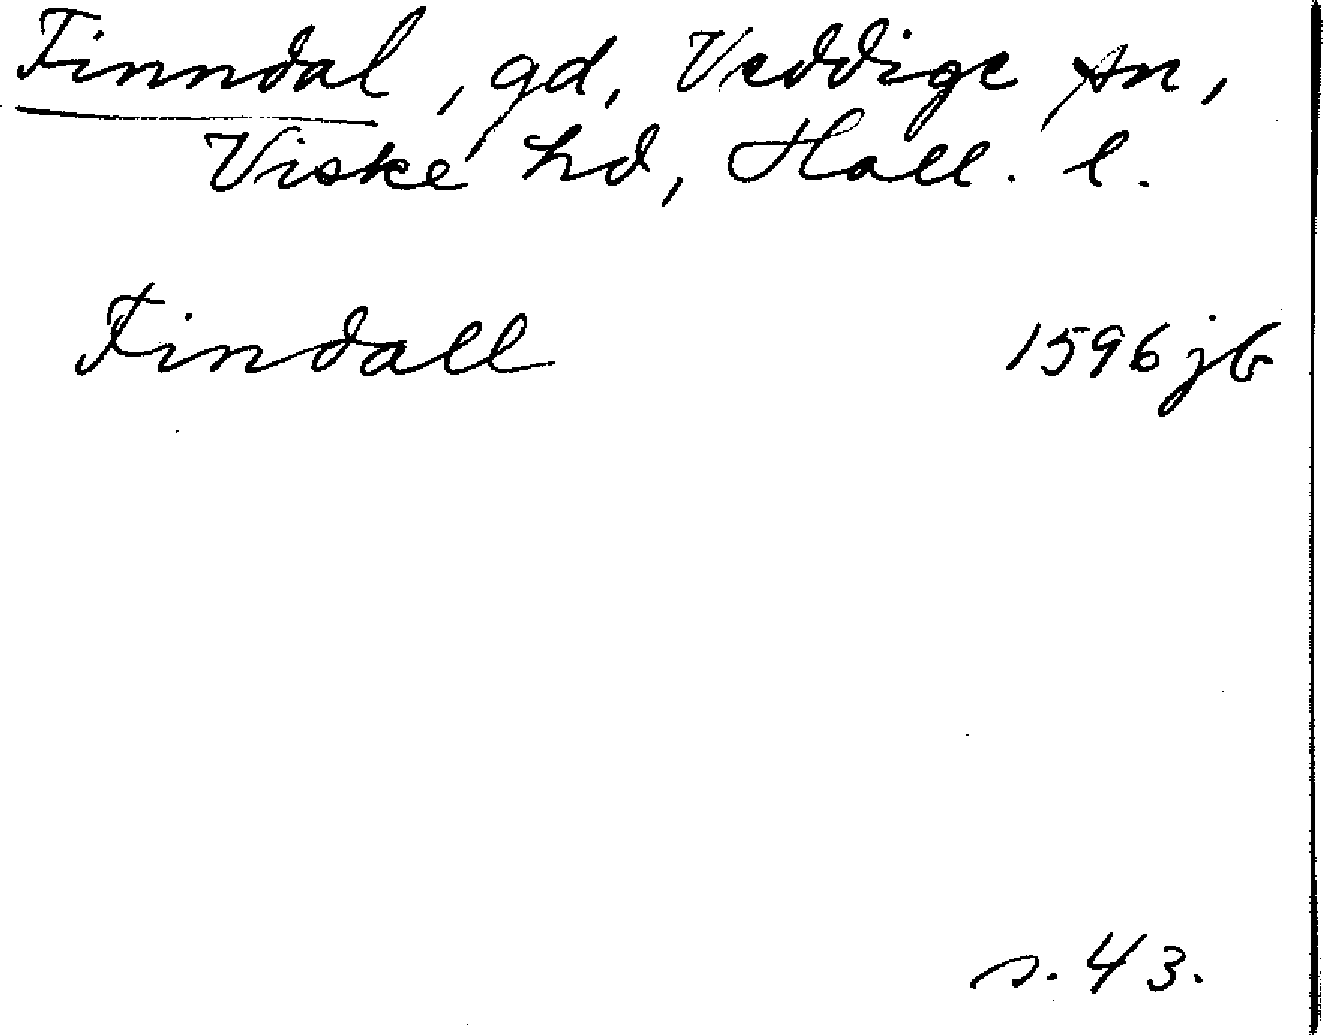 Finndal, gd, Veddige sn,
Viske hd, Hall. l.
Findall 1596 jb
s. 43.